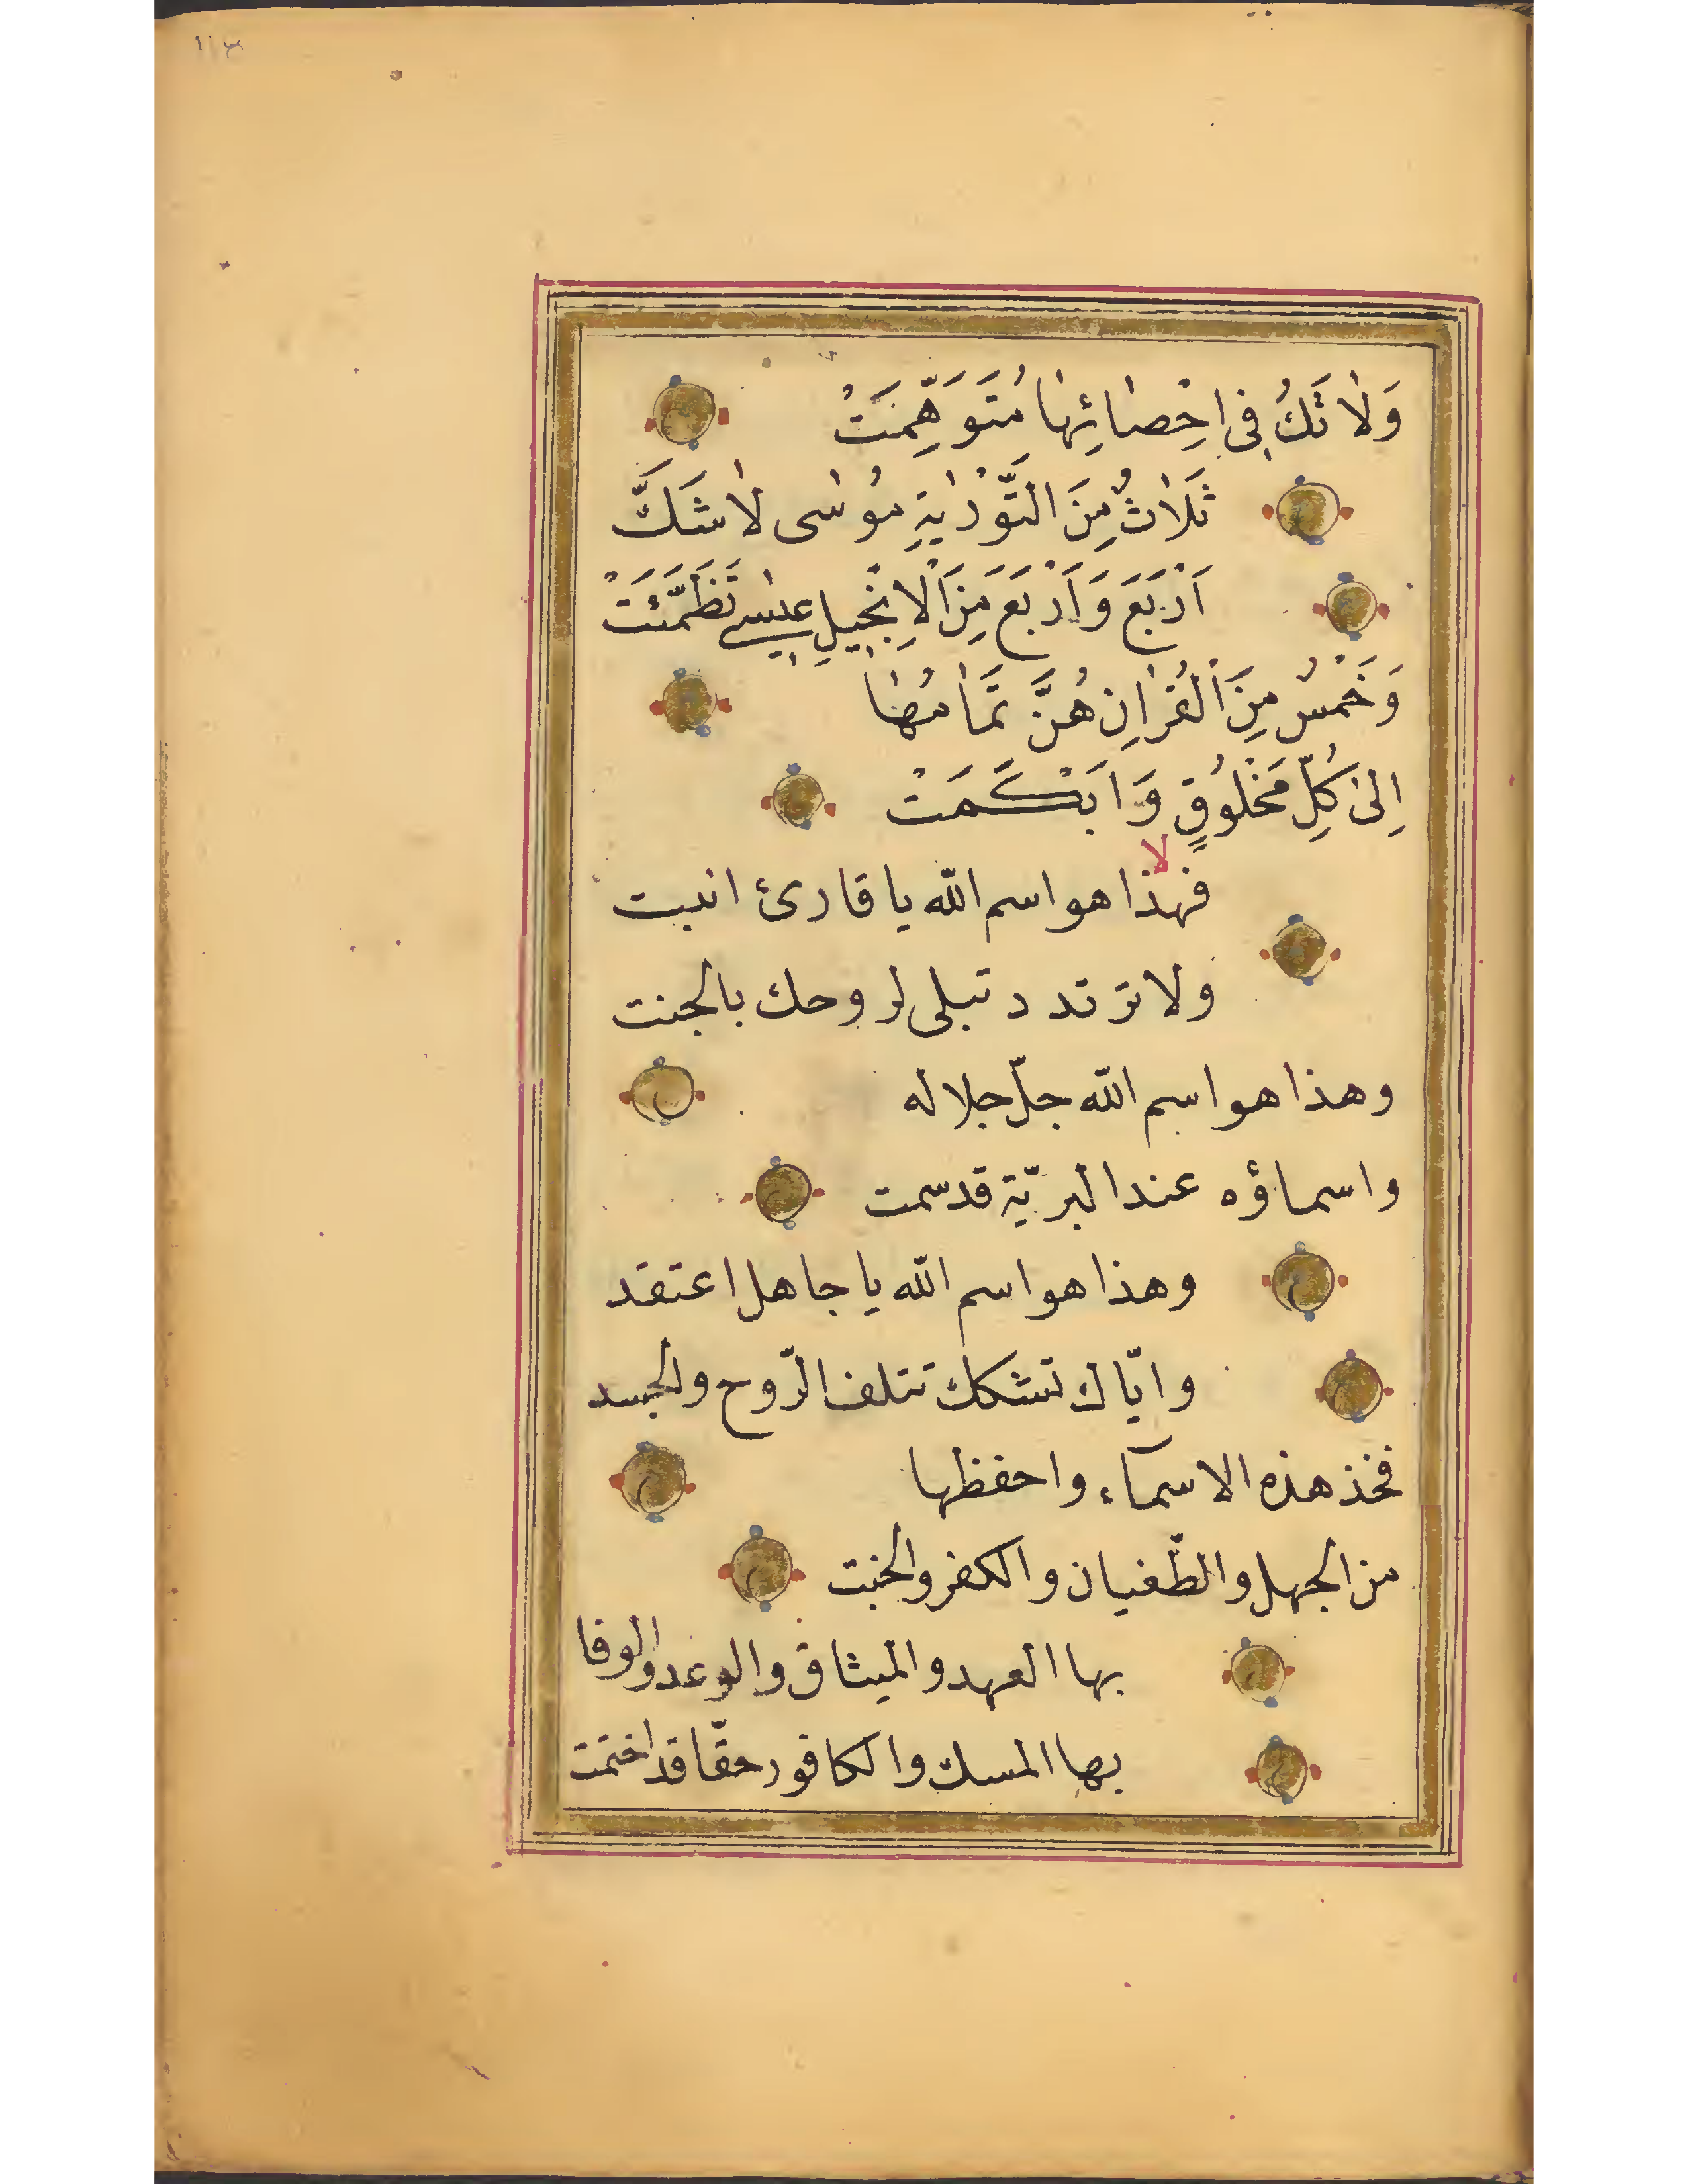 ١١٣
وَلَا تَكُ فِى اِحْصَائِهَا مُتَوَهِّمَتْ
ثَلَاثٌ مِنَ التَّوْرٰيةِ مُوْسٰى لَا شَكَّ
اَرْبَعَ وَاَرْبَعَ مِنَ الْاِنْجِيلِ عِيسٰى
وَخَمْسُ مِنَ الْقُرْاٰنِ هُنَّ تَمَامُهَا
اِلىٰ كُلِّ مَخْلُوْقٍ وَاَبْكَمَتْ
لا
فهذا هو اسم الله يا قارئ انبت
ولا ترتدد تبلى لروحك بالجنت
وهذا هو اسم الله جلّ جلاله
واسماؤه عند البريّة قد سمت
وهذا هو اسم الله يا جاهل اعتقد
وايّاك تشكك تتلف الرّوح والجسد
فخذ هذه الاسمآء واحفظها
من الجهل والطّغيان والكفر والخبت
بها العهد والميثاق والوعد والوفا
بها المسك والكافور حقّا قد اختمت